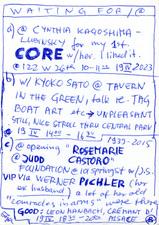 WAITING FOR/@
a) @ CYNTHIA KAGOSHIMA-
LUBINSKY for my 1st
CORE w/her. I liked it.
@ 122 W 26th 10-11 19 IV 2023
b) W/ KYOKO SATO @ TAVERN
IN THE GREEN, talk re-TAG
BOAT ART etc → UNPLEASANT
STILL, NICE STROLL THRU CENTRAL PARK
19 IV 14 - 16
c) @ opening "ROSEMARIE
@ JUDD CASTORO" 1939-2015
FOUNDATION @ 101 Spring st w/J.S.
VIP via WERNER PICHLER (her
ex husband) a lot of her old
"comrades in arms" were there
GOOD: LEON HANBACH, CRÉMANT D'
19 IV 18 - 20 ALSACE